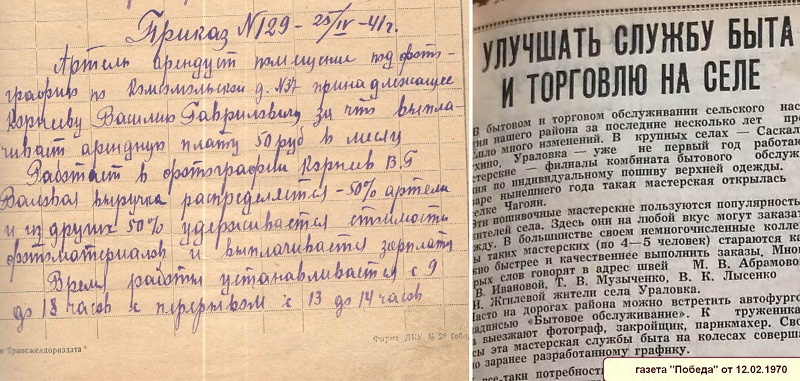 Приказ N 129 - 25/IV - 41 г.
Артель арендует помещение под фото-
графию по Комсомольской д. N37 принадлежащее
Корневу Василию Гавриловичу за что выпла-
чивает арендную плату 50 руб в месяц
Работает в фотографии Корнев В.Г
Валовая выручка распределяется - 50% артели
и из других 50% удерживается стоимость
фотоматериалов и выплачивается зарплата
Время работы устанавливается с 9
до 18 часов с перерывом с 13 до 14 часов
и Трансжелдориздата"
Форма ЛКУ № 28
УЛУЧШАТЬ СЛУЖБУ БЫТА
И ТОРГОВЛЮ НА СЕЛЕ
В бытовом и торговом обслуживании сельского нас
ия нашего района за последние несколько лет про
шло много изменений. В крупных селах — Саскал
Ураловка — уже не первый год работаю
терские — филиалы комбината бытового обслуж
ия по индивидуальному пошиву верхней одежды.
варе нынешнего года такая мастерская открылась
селке Чагоян.
Эти пошивочные мастерские пользуются популярность
жителей села. Здесь они на любой вкус могут заказа
жду. В большинстве своем немногочисленные колле
ы таких мастерских (по 4—5 человек) стараются ка
но быстрее и качественнее выполнить заказы. Мног
рых слов говорят в адрес швей М. В. Абрамово
В. Ивановой, Т. В. Музыченко, В. К. Лысенко
И. Жгилевой жители села Ураловка.
Часто на дорогах района можно встретить автофурго
надписью «Бытовое обслуживание». К труженика
а выезжают фотограф, закройщик, парикмахер. Сво
сы эта мастерская службы быта на колесах соверша
о заранее разработанному графику.
все-таки потребность
газета "Победа" от 12.02.1970